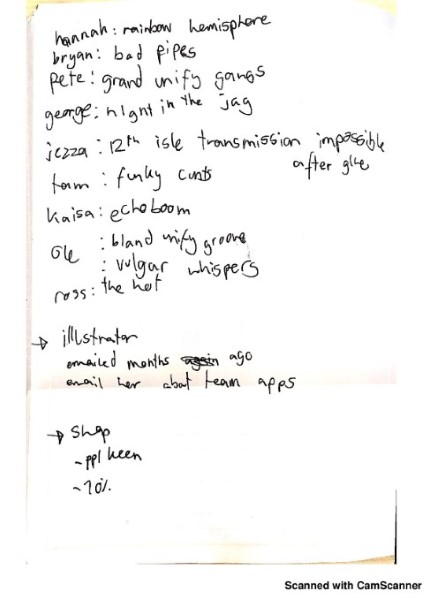 hannah: rainbow hemisphere
bryan: bad pipes
pete: grand unify gangs
george: night in the jag
jezza: 12th isle transmission impossible
after glue
tom: funky cunts
kaisa: echo boom
: bland unify groove
: vulgar whispers
ross: the hot
→ illstrator
emailed months again ago
email her abat team apps
→ shop
- ppl keen
- 70%
Scanned with CamScanner